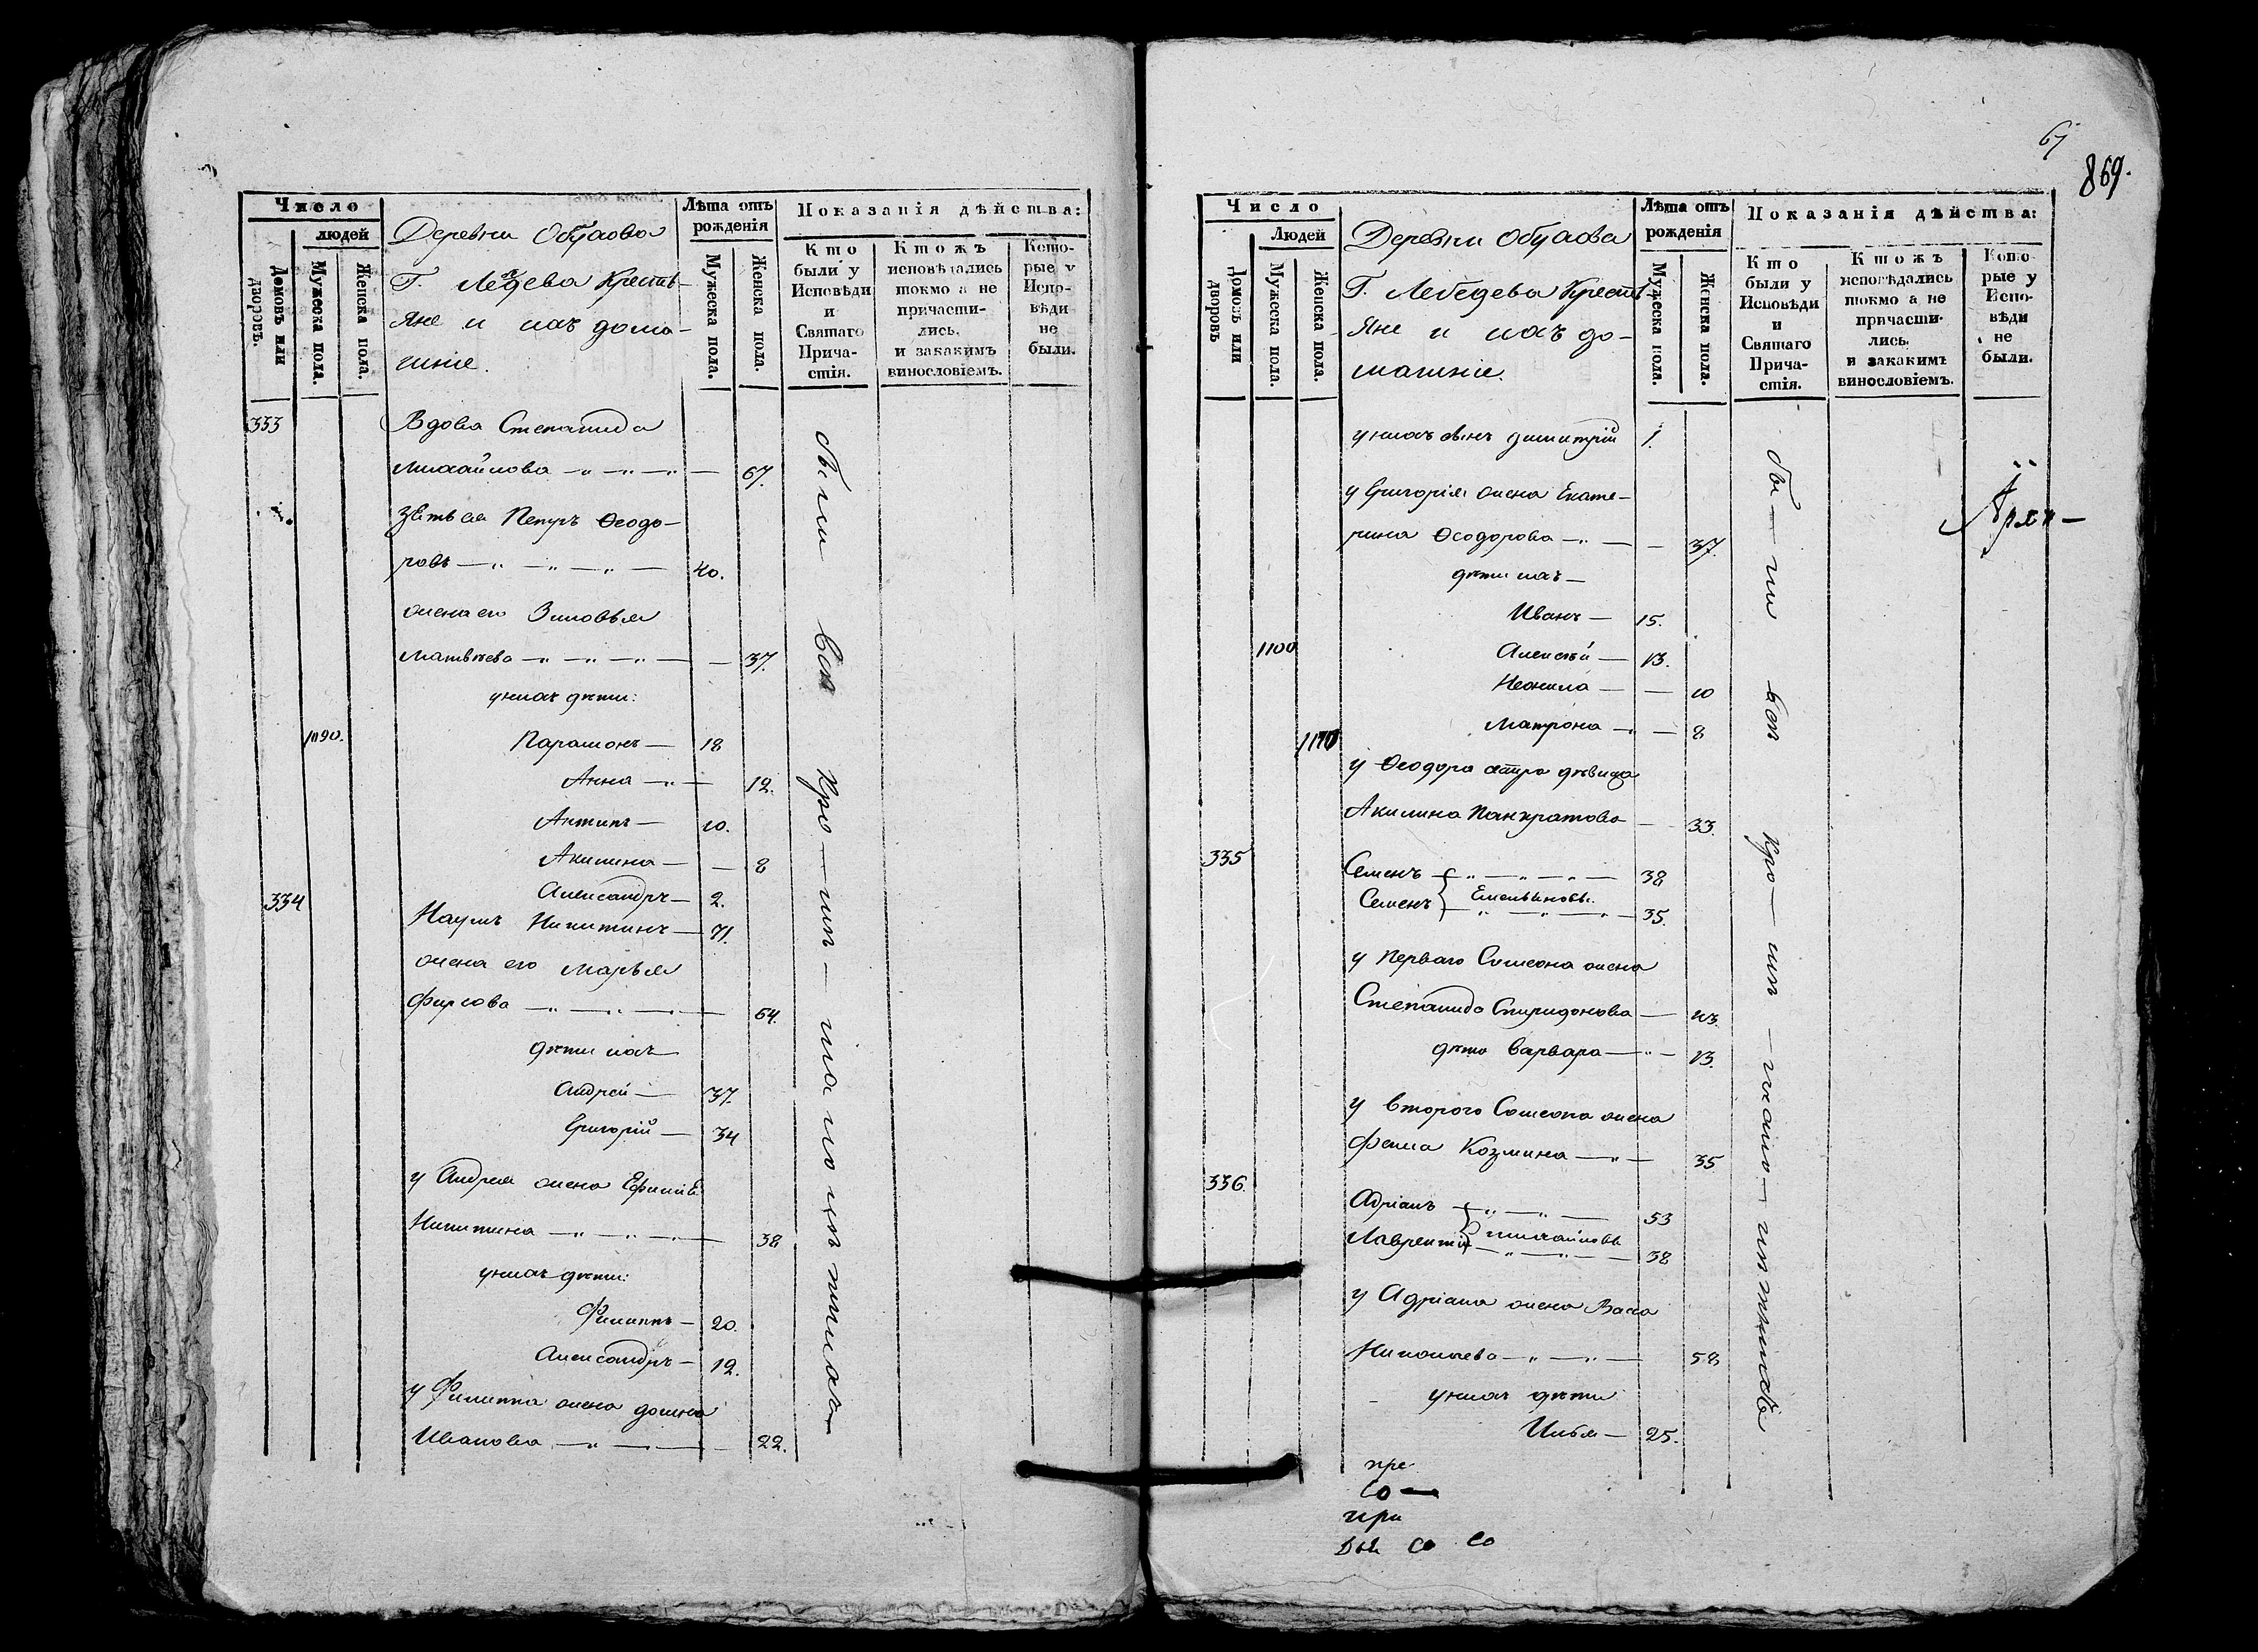 Число
людей
Домовъ или дворовъ.
Мужеска пола.
Женска пола.
Деревни
Г. Крестья-
яне и ихъ дома-
шніе.
Лѣта отъ рожденія
Мужеска пола.
Женска пола.
Показанія дѣйства:
Кто были у Исповѣди и Святаго Причастія.
Ктожъ исповѣдались токмо а не причастились. и закакимъ винословіемъ.
Которые у Исповѣди не были.
333 Вдова Степанида
Михайлова — 67.
Зять ея Петръ Ѳеодо-
ровъ — 40.
жена его Зиновья
Матвѣева — 37.
у нихъ дѣти:
1090. Парамонъ — 18
Анна — 12.
Антипъ — 10.
Акилина — 8
Александръ — 2.
334 Наумъ Никитинъ — 71.
жена его Марья
Фирсова — 64.
дѣти ихъ
Андрей — 37.
Григорій — 34
у Андрея жена Ефимія
Никитина — 38
у нихъ дѣти:
Филиппъ — 20.
Александръ — 12.
у Филиппа жена Домна
Иванова — 22.
были всѣ
67
869.
Число
Людей
Домовъ или дворовъ
Мужеска пола.
Женска пола.
Деревни
Г. Лебедева Крестья-
яне и ихъ до-
машніе.
Лѣта отъ рожденія
Мужеска пола.
Женска пола.
Показанія дѣйства:
Кто были у Исповѣди и Святаго Причастія.
Ктожъ исповѣдались токмо а не причастились. и закакимъ винословіемъ.
Которые у Исповѣди не были.
у нихъ сынъ Димитрій 1.
у Григорія жена Екате-
рина Ѳеодорова — 37.
дѣти ихъ —
Иванъ — 15.
1100 Алексѣй — 13.
Неонила — 10
Матрона — 8
1110
у Ѳеодора сестра дѣвица
Акилина Панкратова — 33.
335 Семенъ — 38
Семенъ Емельяновы. — 35.
у перваго Симеона жена
Степанида Спиридонова — 43.
дѣти Варвара — 13.
у втораго Симеона жена
Фекла Козмина — 35
336. Адріанъ — 53
Лаврентій Михайловы — 38
у Адріана жена Васса
Николаева — 58
у нихъ дѣти
Илья — 25.
бы — ли всѣ
пре
со —
при
со со